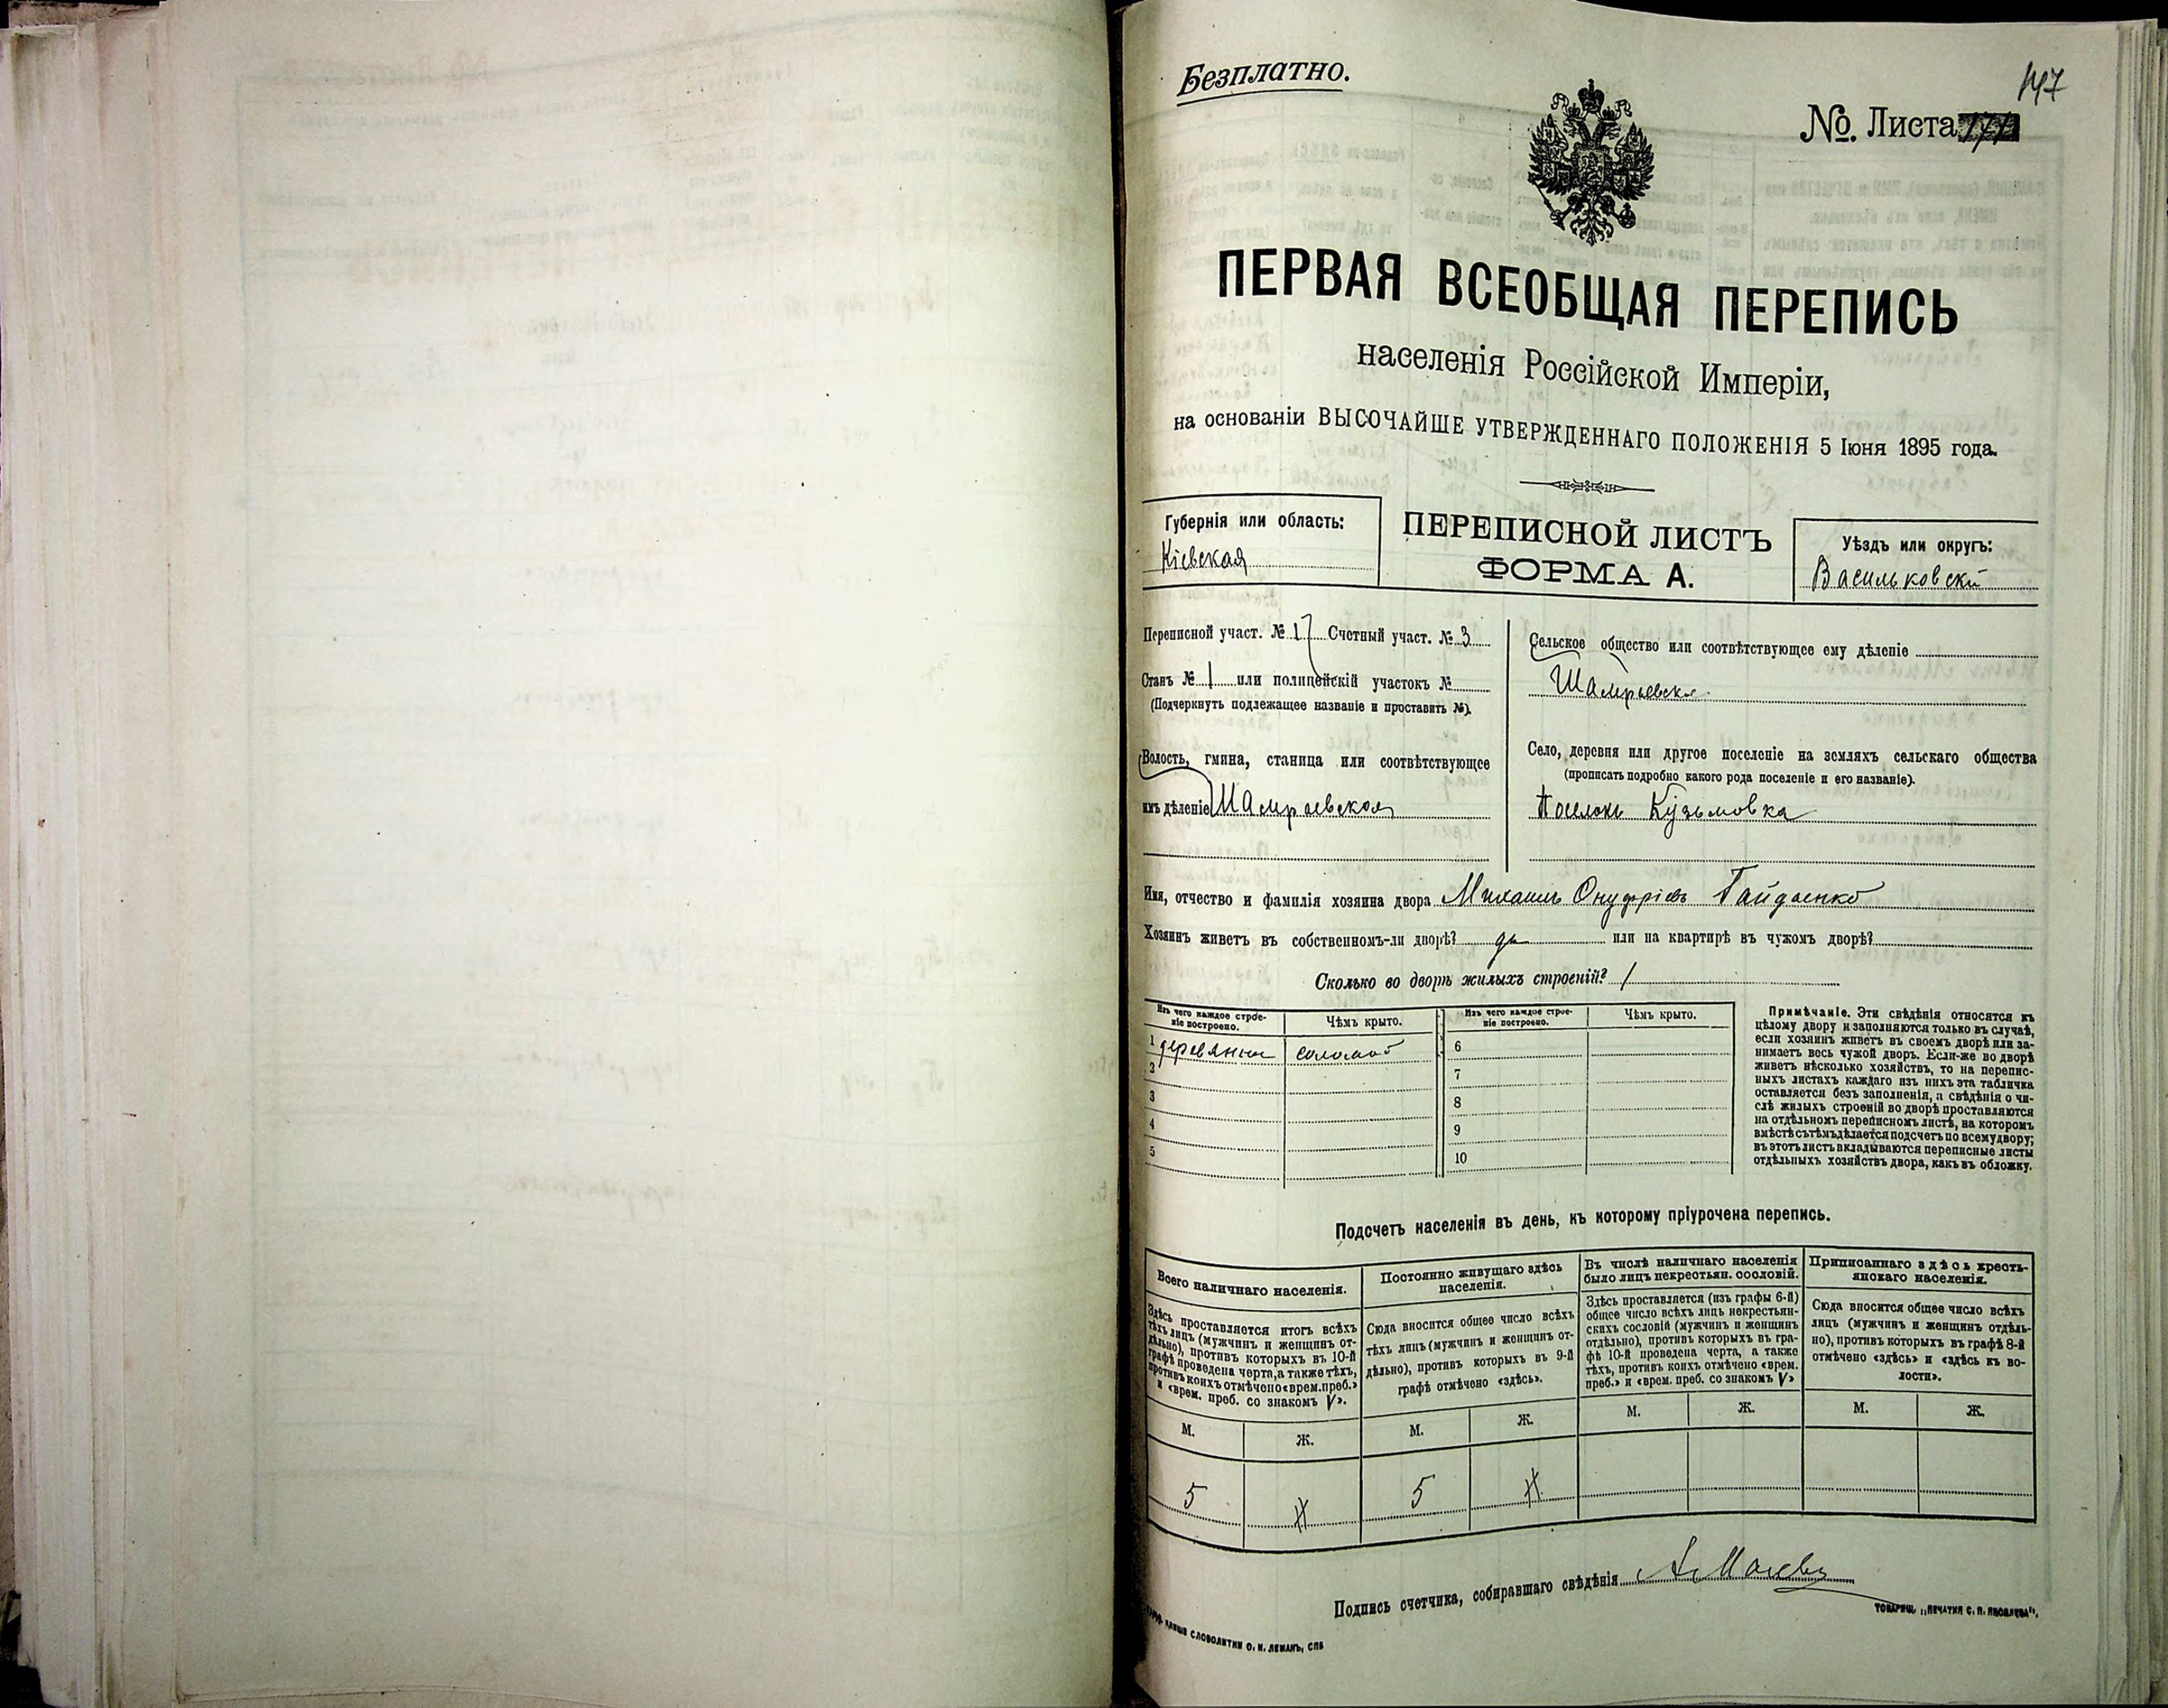 Безплатно.
147
№. Листа
ПЕРВАЯ ВСЕОБЩАЯ ПЕРЕПИСЬ
населенія Россійской Имперіи,
на основаніи ВЫСОЧАЙШЕ УТВЕРЖДЕННАГО ПОЛОЖЕНІЯ 5 Іюня 1895 года.
Губернія или область:
Кіевская
ПЕРЕПИСНОЙ ЛИСТЪ
ФОРМА А.
Уѣздъ или округъ:
Васильковскій
Переписной участ. № 17 Счетный участ. № 3
Станъ № 1 или полицейскій участокъ №
(Подчеркнуть подлежащее названіе и проставить №).
Волость, гмина, станица или соотвѣтствующее
имъ дѣленіе Шамраевская
Сельское общество или соотвѣтствующее ему дѣленіе
Шамраевское
Село, деревня или другое поселеніе на земляхъ сельскаго общества
(прописать подробно какого рода поселеніе и его названіе).
Поселокъ Кузьмовка
Имя, отчество и фамилія хозяина двора Михаилъ Онуфріевъ Гайдаенко
Хозяинъ живетъ въ собственномъ-ли дворѣ? да или на квартирѣ въ чужомъ дворѣ?
Сколько во дворѣ жилыхъ строеній? 1
Изъ чего каждое строе-
ніе построено.
Чѣмъ крыто.
1 деревянное соломой
2
3
4
5
Изъ чего каждое строе-
ніе построено.
Чѣмъ крыто.
6
7
8
9
10
Примѣчаніе. Эти свѣдѣнія относятся къ
цѣлому двору и заполняются только въ случаѣ,
если хозяинъ живетъ въ своемъ дворѣ или за-
нимаетъ весь чужой дворъ. Если-же во дворѣ
живетъ нѣсколько хозяйствъ, то на перепис-
ныхъ листахъ каждаго изъ нихъ эта табличка
оставляется безъ заполненія, а свѣдѣнія о чи-
слѣ жилыхъ строеній во дворѣ проставляются
на отдѣльномъ переписномъ листѣ, на которомъ
вмѣстѣ съ тѣмъ дѣлается подсчетъ по всему двору;
въ этотъ листъ вкладываются переписные листы
отдѣльныхъ хозяйствъ двора, какъ въ обложку.
Подсчетъ населенія въ день, къ которому пріурочена перепись.
Всего наличнаго населенія.
Здѣсь проставляется итогъ всѣхъ
тѣхъ лицъ (мужчинъ и женщинъ от-
дѣльно), противъ которыхъ въ 10-й
графѣ проведена черта, а также тѣхъ,
противъ коихъ отмѣчено «врем. преб.»
и «врем. преб. со знакомъ V».
М. Ж.
5
Постоянно живущаго здѣсь
населенія.
Сюда вносится общее число всѣхъ
тѣхъ лицъ (мужчинъ и женщинъ от-
дѣльно), противъ которыхъ въ 9-й
графѣ отмѣчено «здѣсь».
М. Ж.
5
Въ числѣ наличнаго населенія
было лицъ некрестьян. сословій.
Здѣсь проставляется (изъ графы 6-й)
общее число всѣхъ лицъ некрестьян-
скихъ сословій (мужчинъ и женщинъ
отдѣльно), противъ которыхъ въ гра-
фѣ 10-й проведена черта, а также
тѣхъ, противъ коихъ отмѣчено «врем.
преб.» и «врем. преб. со знакомъ V»
М. Ж.
Приписаннаго здѣсь кресть-
янскаго населенія.
Сюда вносится общее число всѣхъ
лицъ (мужчинъ и женщинъ отдѣль-
но), противъ которыхъ въ графѣ 8-й
отмѣчено «здѣсь» и «здѣсь къ во-
лости».
М. Ж.
Подпись счетчика, собиравшаго свѣдѣнія
СЛОВОЛИТНИ О. И. ЛЕМАНЪ, СПБ
ТОВАРИЩ. „ПЕЧАТНЯ С. П. ЯКОВЛЕВА".